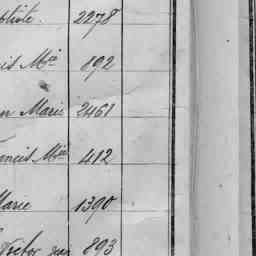 2278
is Mie 892
n Marie 2461
ancis Mie 412
Marie 1390
Victor 893